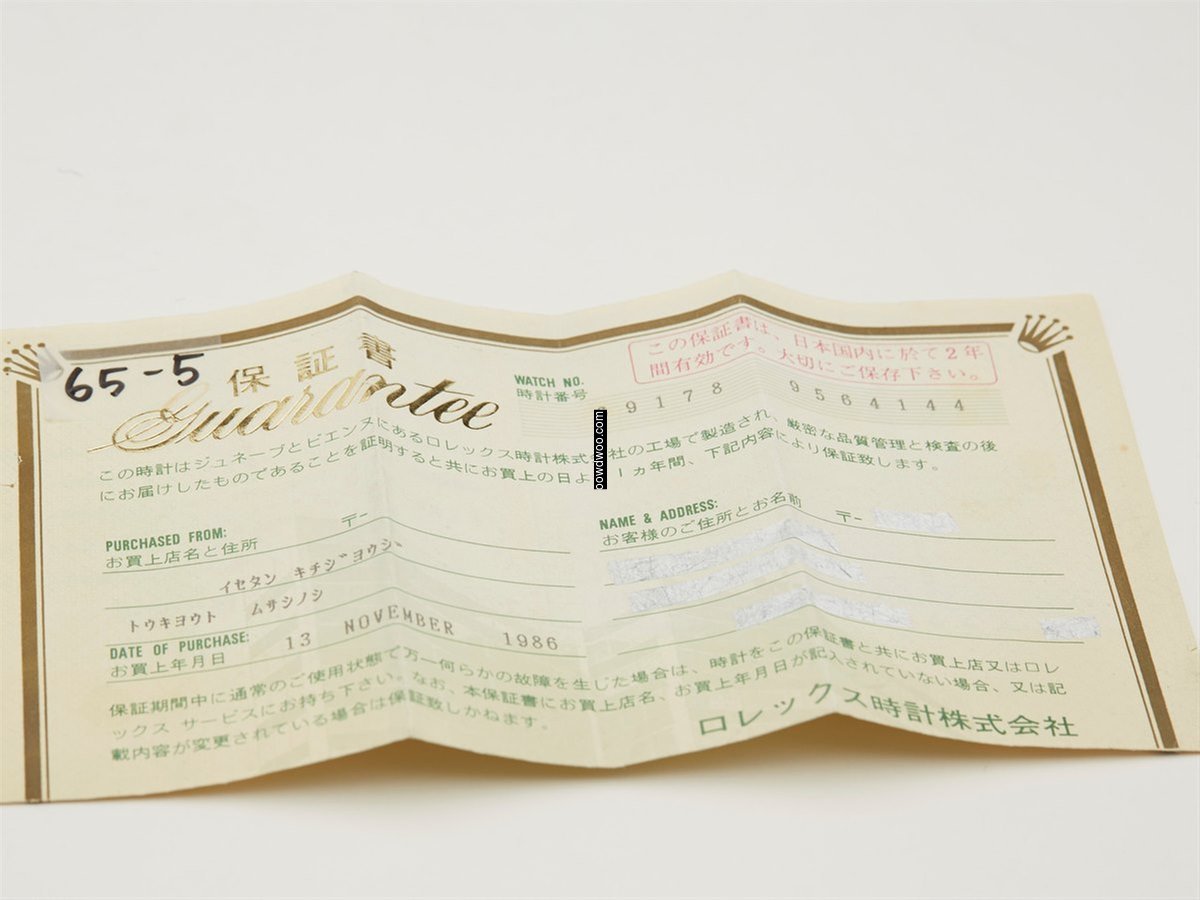 65-5
保証書
Guarantee
WATCH NO.
時計番号
9178 9564144
この保証書は、日本国内に於て2年
間有効です。大切にご保存下さい。
この時計はジュネーブとビエンヌにあるロレックス時計株式会社の工場で製造され、厳密な品質管理と検査の後
にお届けしたものであることを証明すると共にお買上の日よ 1カ年間、下記内容により保証致します。
PURCHASED FROM:
お買上店名と住所
〒-
イセタン キチジヨウジ
トウキヨウト ムサシノシ
DATE OF PURCHASE:
お買上年月日
13 NOVEMBER 1986
NAME & ADDRESS:
お客様のご住所とお名前
〒-
保証期間中に通常のご使用状態で万一何らかの故障を生じた場合は、時計をこの保証書と共にお買上店又はロレ
ックス サービスにお持ち下さい。なお、本保証書にお買上店名、お買上年月日が記入されていない場合、又は記
載内容が変更されている場合は保証致しかねます。
ロレックス時計株式会社
powdwoo.com